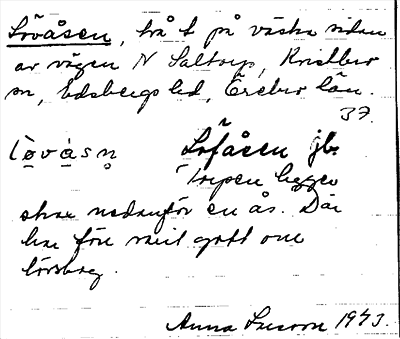 Lövåsen, två t på västra sidan
av vägen N Saltorp, Kvistbro
sn, Edsbergs hd, Örebro län.
37.
lø̀vàsn̥ Löfåsen jb.
Torpen ligger
strax nedanför en ås. Där
har förr varit gott om
lövskog.
Anna 1943.